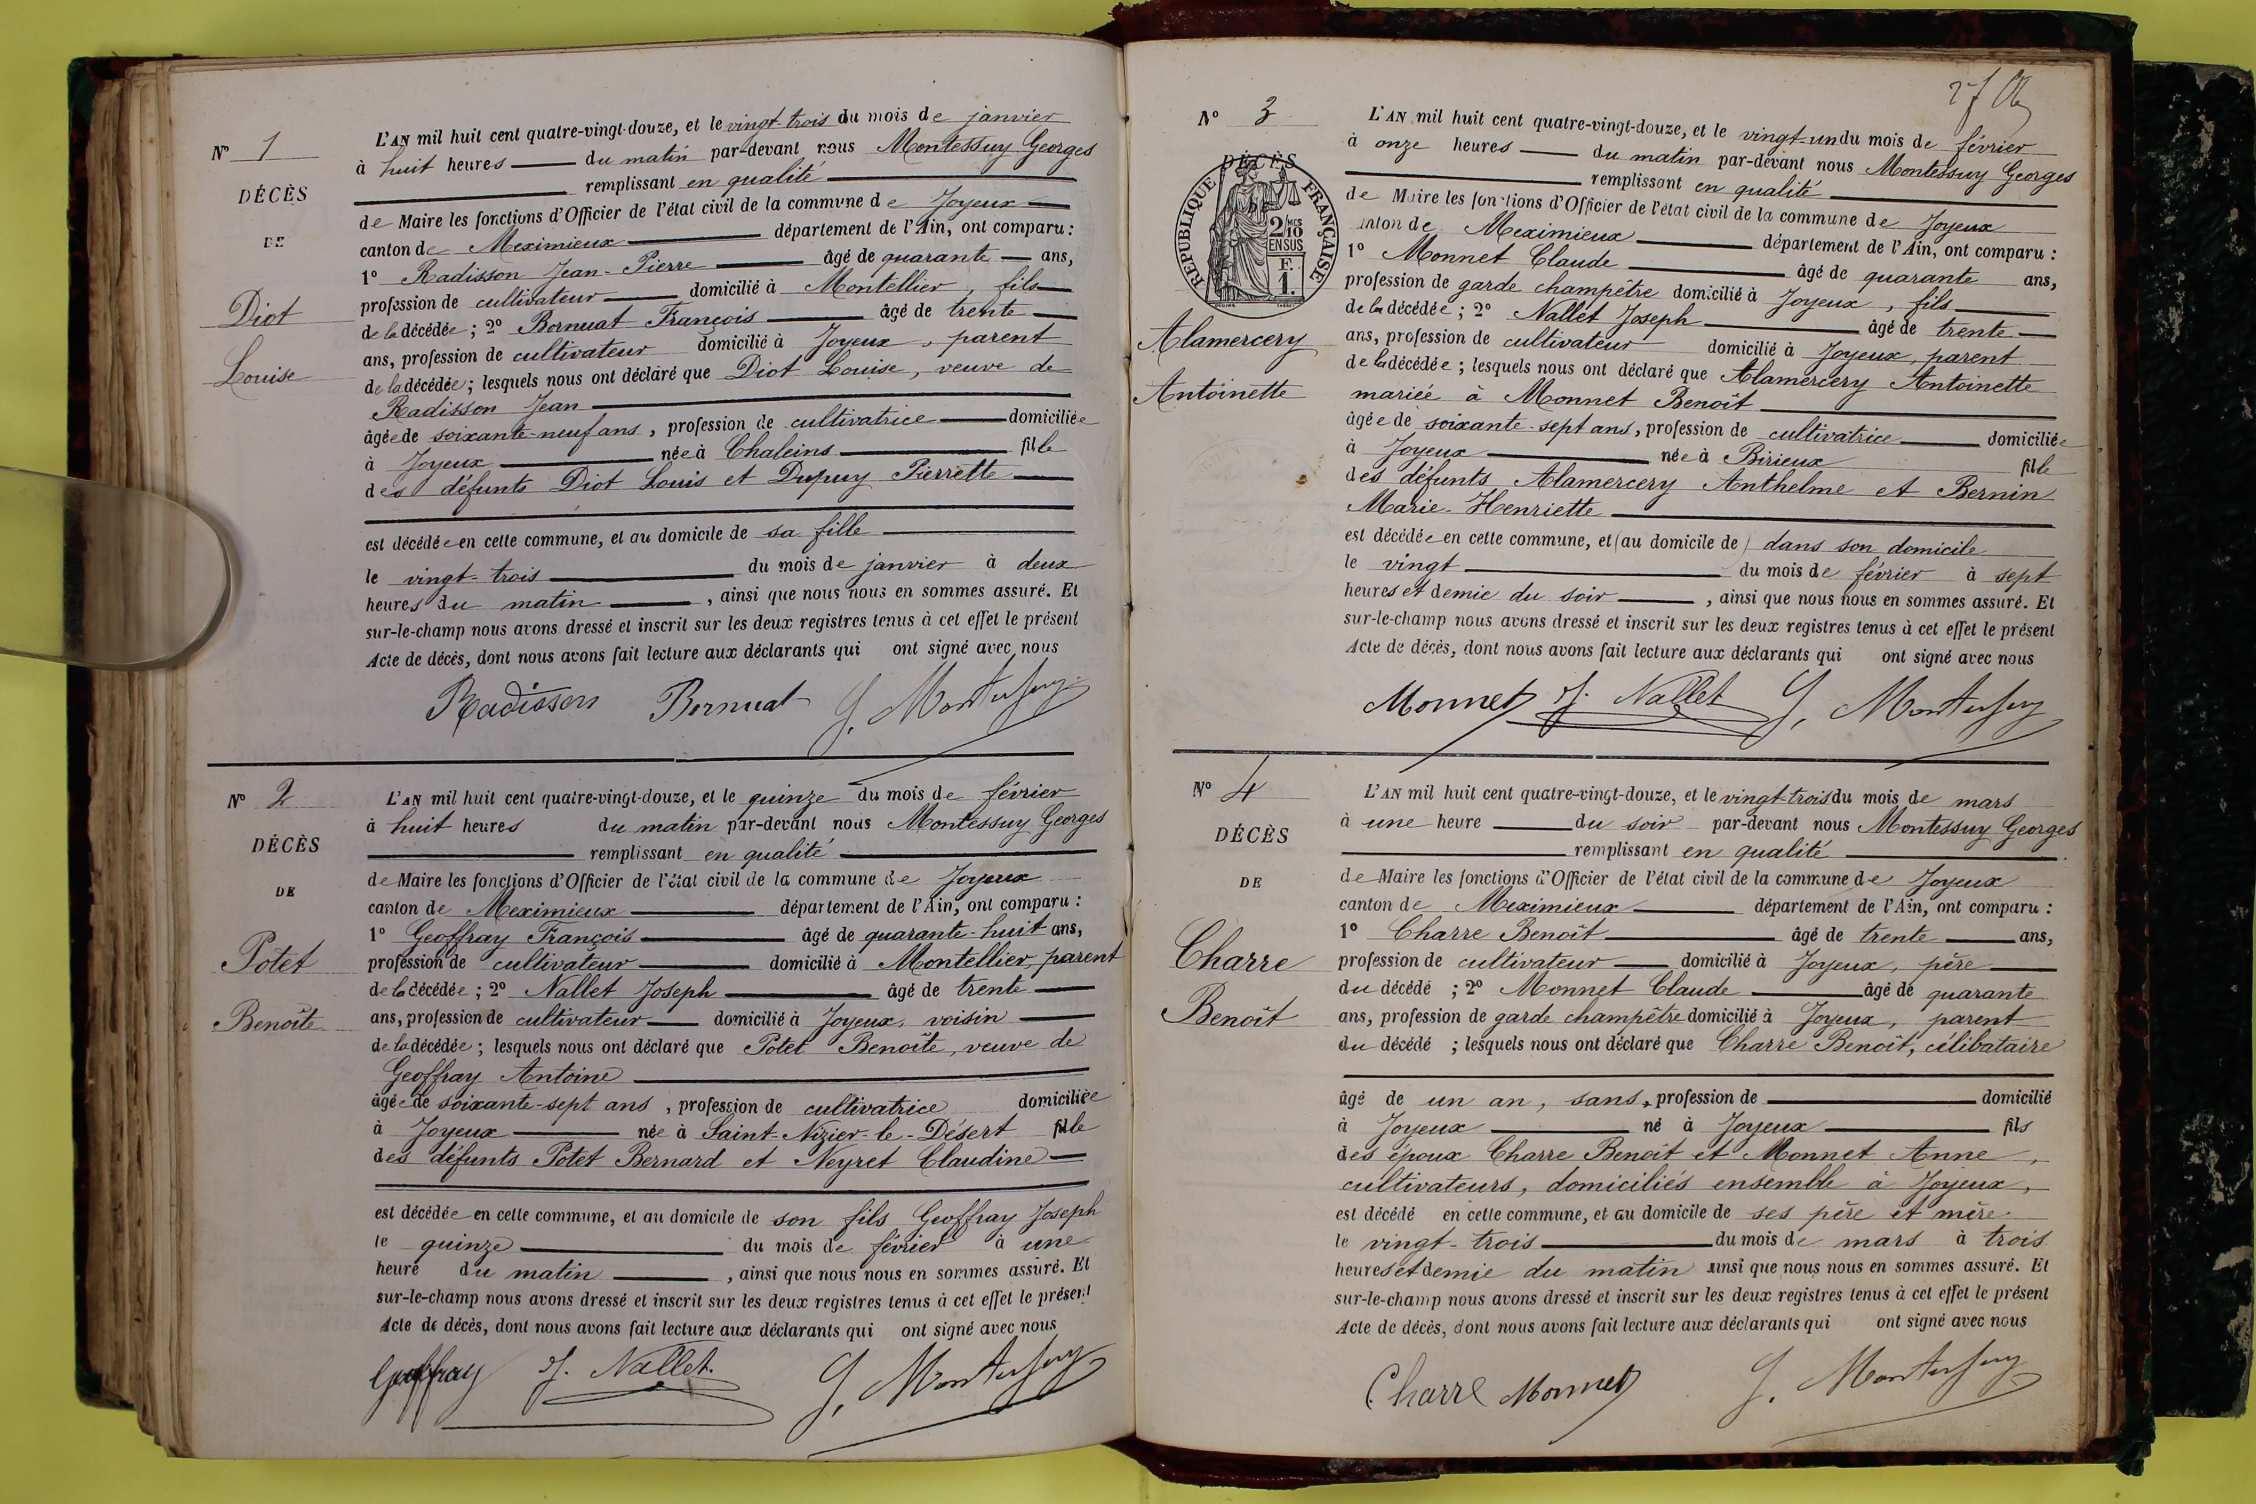 N° 1
DÉCÈS
DE
Diot
Louise
L'AN mil huit cent quatre-vingt-douze, et le vingt-trois du mois de janvier
à huit heures du matin par-devant nous Montessuy Georges
remplissant en qualité
de Maire les fonctions d'Officier de l'état civil de la commune de Joyeux
canton de Meximieux département de l'Ain, ont comparu :
1° Radisson Jean-Pierre âgé de quarante ans,
profession de cultivateur domicilié à Montellier, fils
de la décédée ; 2° Bornuat François âgé de trente
ans, profession de cultivateur domicilié à Joyeux, parent
de la décédée ; lesquels nous ont déclaré que Diot Louise, veuve de
Radisson Jean
âgée de soixante-neuf ans, profession de cultivatrice domiciliée
à Joyeux née à Chaleins fille
des défunts Diot Louis et Dupuy Pierrette
est décédée en cette commune, et au domicile de sa fille
le vingt-trois du mois de janvier à deux
heures du matin, ainsi que nous nous en sommes assuré. Et
sur-le-champ nous avons dressé et inscrit sur les deux registres tenus à cet effet le présent
Acte de décès, dont nous avons fait lecture aux déclarants qui ont signé avec nous
Radisson Bornuat G. Montessuy
N° 2
DÉCÈS
DE
Potet
Benoîte
L'AN mil huit cent quatre-vingt-douze, et le quinze du mois de février
à huit heures du matin par-devant nous Montessuy Georges
remplissant en qualité
de Maire les fonctions d'Officier de l'état civil de la commune de Joyeux
canton de Meximieux département de l'Ain, ont comparu :
1° Geoffray François âgé de quarante-huit ans,
profession de cultivateur domicilié à Montellier, parent
de la décédée ; 2° Nallet Joseph âgé de trente
ans, profession de cultivateur domicilié à Joyeux, voisin
de la décédée ; lesquels nous ont déclaré que Potet Benoîte, veuve de
Geoffray Antoine
âgée de soixante-sept ans, profession de cultivatrice domiciliée
à Joyeux née à Saint-Nizier-le-Désert fille
des défunts Potet Bernard et Neyret Claudine
est décédée en cette commune, et au domicile de son fils Geoffray Joseph
le quinze du mois de février à une
heure du matin, ainsi que nous nous en sommes assuré. Et
sur-le-champ nous avons dressé et inscrit sur les deux registres tenus à cet effet le présent
Acte de décès, dont nous avons fait lecture aux déclarants qui ont signé avec nous
Geoffray J. Nallet. G. Montessuy
N° 3
DÉCÈS
RÉPUBLIQUE FRANÇAISE
2/10 MES
EN SUS
F.
1.
Alamercery
Antoinette
L'AN mil huit cent quatre-vingt-douze, et le vingt-un du mois de février
à onze heures du matin par-devant nous Montessuy Georges
remplissant en qualité
de Maire les fonctions d'Officier de l'état civil de la commune de Joyeux
canton de Meximieux département de l'Ain, ont comparu :
1° Monnet Claude âgé de quarante ans,
profession de garde champêtre domicilié à Joyeux, fils
de la décédée ; 2° Nallet Joseph âgé de trente
ans, profession de cultivateur domicilié à Joyeux, parent
de la décédée ; lesquels nous ont déclaré que Alamercery Antoinette
mariée à Monnet Benoît
âgée de soixante-sept ans, profession de cultivatrice domiciliée
à Joyeux née à Birieux fille
des défunts Alamercery Anthelme et Bernin
Marie-Henriette
est décédée en cette commune, et (au domicile de) dans son domicile
le vingt du mois de février à sept
heures et demie du soir, ainsi que nous nous en sommes assuré. Et
sur-le-champ nous avons dressé et inscrit sur les deux registres tenus à cet effet le présent
Acte de décès, dont nous avons fait lecture aux déclarants qui ont signé avec nous
Monnet J. Nallet G. Montessuy
N° 4
DÉCÈS
DE
Charre
Benoît
L'AN mil huit cent quatre-vingt-douze, et le vingt-trois du mois de mars
à une heure du soir par-devant nous Montessuy Georges
remplissant en qualité
de Maire les fonctions d'Officier de l'état civil de la commune de Joyeux
canton de Meximieux département de l'Ain, ont comparu :
1° Charre Benoît âgé de trente ans,
profession de cultivateur domicilié à Joyeux, père
du décédé ; 2° Monnet Claude âgé de quarante
ans, profession de garde champêtre domicilié à Joyeux, parent
du décédé ; lesquels nous ont déclaré que Charre Benoît, célibataire
âgé de un an, sans, profession de domicilié
à Joyeux né à Joyeux fils
des époux Charre Benoît et Monnet Anne,
cultivateurs, domiciliés ensemble à Joyeux,
est décédé en cette commune, et au domicile de ses père et mère
le vingt-trois du mois de mars à trois
heures et demie du matin ainsi que nous nous en sommes assuré. Et
sur-le-champ nous avons dressé et inscrit sur les deux registres tenus à cet effet le présent
Acte de décès, dont nous avons fait lecture aux déclarants qui ont signé avec nous
Charre Monnet G. Montessuy